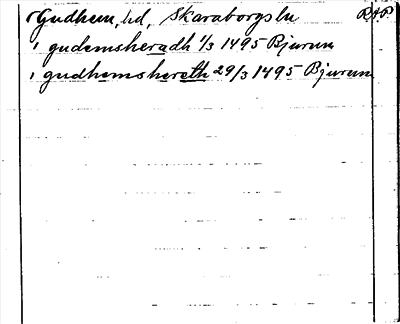 Gudhem, hd, Skaraborgs ln RAP
i gudemsheradh 1/3 1495 Bjurum
i gudhemshereth 29/3 1495 Bjurum